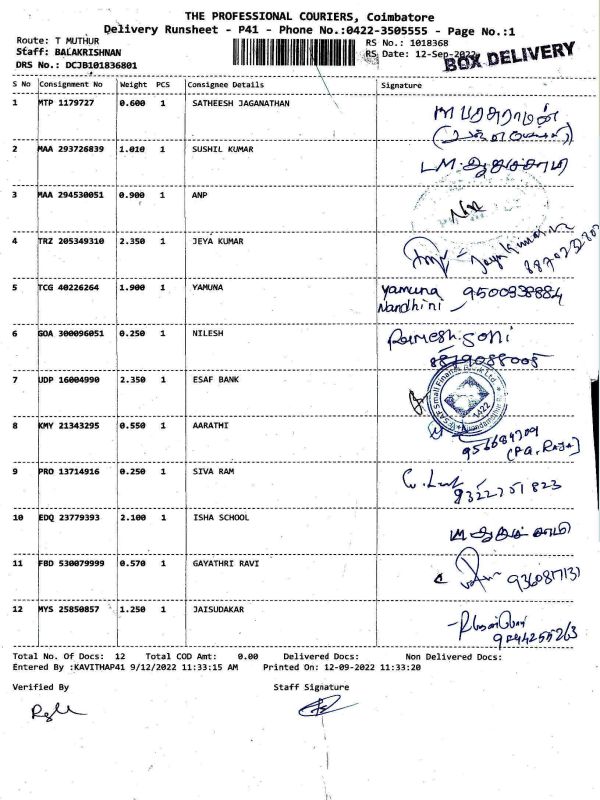 THE PROFESSIONAL COURIERS, Coimbatore
Delivery Runsheet - P41 - Phone No.:0422-3505555 - Page No.:1
Route: T MUTHUR
RS No.: 1018368
Staff: BALAKRISHNAN
RS Date: 12-Sep-2022
BOX DELIVERY
DRS No.: DCJB101836801
S No Consignment No Weight PCS Consignee Details Signature
1 MTP 1179727 0.600 1 SATHEESH JAGANATHAN
2 MAA 293726839 1.010 1 SUSHIL KUMAR
3 MAA 294530051 0.900 1 ANP
4 TRZ 205349310 2.350 1 JEYA KUMAR Jeyakumar
5 TCG 40226264 1.900 1 YAMUNA Yamuna 9500938884
Nandhini
6 GOA 300096051 0.250 1 NILESH Ramesh.Soni
7 UDP 16004990 2.350 1 ESAF BANK
8 KMY 21343295 0.550 1 AARATHI
9 PRO 13714916 0.250 1 SIVA RAM
10 EDQ 23779393 2.100 1 ISHA SCHOOL
11 FBD 530079999 0.570 1 GAYATHRI RAVI
12 MYS 25850857 1.250 1 JAISUDAKAR
Total No. Of Docs: 12 Total COD Amt: 0.00 Delivered Docs: Non Delivered Docs:
Entered By :KAVITHAP41 9/12/2022 11:33:15 AM Printed On: 12-09-2022 11:33:20
Verified By Staff Signature